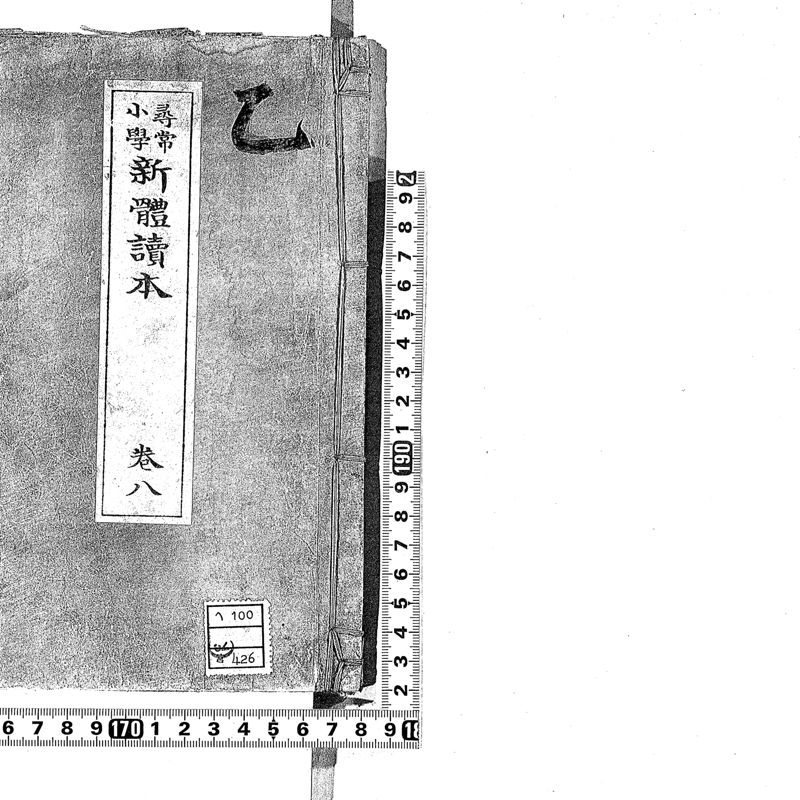 乙
尋常
小學
新體讀本
卷八
ヘ 100
426
2 9 8 7 6 5 4 3 2 1 190 9 8 7 6 5 4 3 2
6 7 8 9 170 1 2 3 4 5 6 7 8 9 18